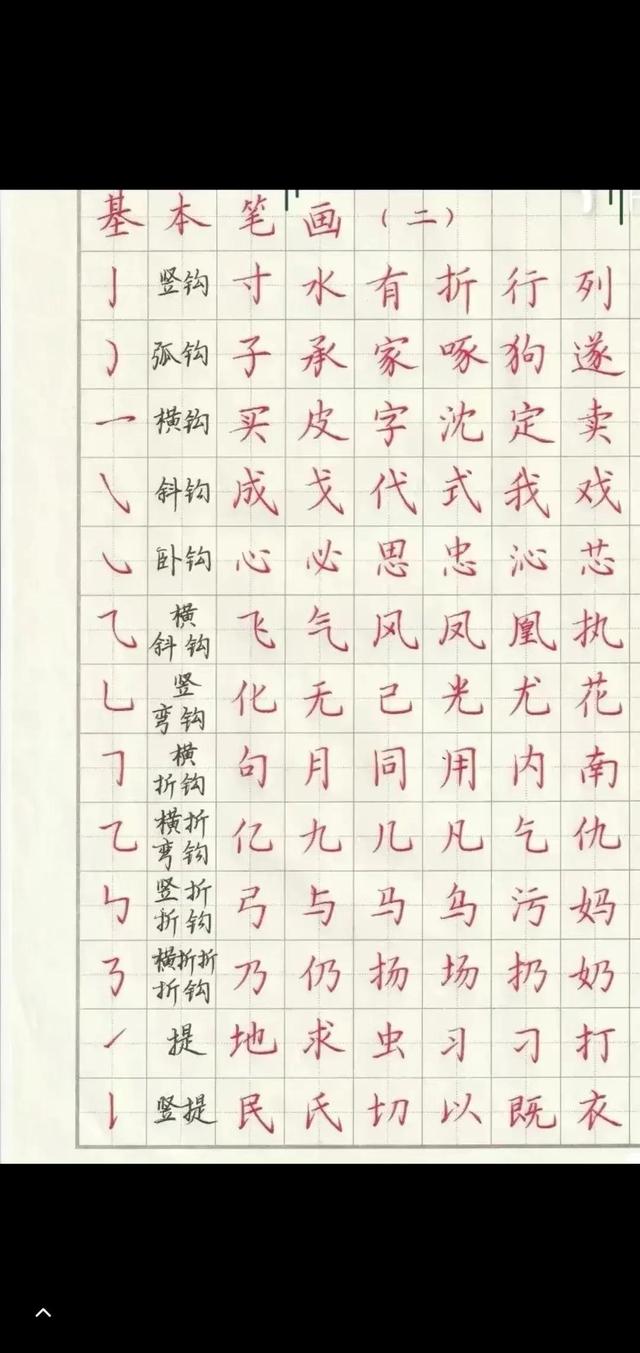 基本笔画（二）
亅 竖钩 寸 水 有 折 行 列
㇁ 弧钩 子 承 家 啄 狗 遂
乛 横钩 买 皮 字 沈 定 卖
㇂ 斜钩 成 戈 代 式 我 戏
㇃ 卧钩 心 必 思 忠 沁 芯
⺄ 横斜钩 飞 气 风 凤 凰 执
乚 竖弯钩 化 无 己 光 尤 花
𠃌 横折钩 句 月 同 用 内 南
乙 横折弯钩 亿 九 几 凡 乞 仇
㇉ 竖折折钩 弓 与 马 鸟 污 妈
㇡ 横折折折钩 乃 仍 扬 场 扔 奶
㇀ 提 地 求 虫 习 刁 打
㇙ 竖提 民 氏 切 以 既 衣